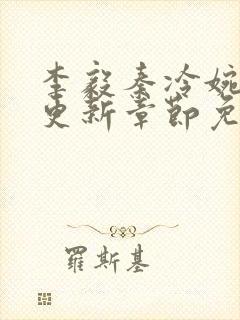 李毅秦冷婉
更新章节免
羅斯基